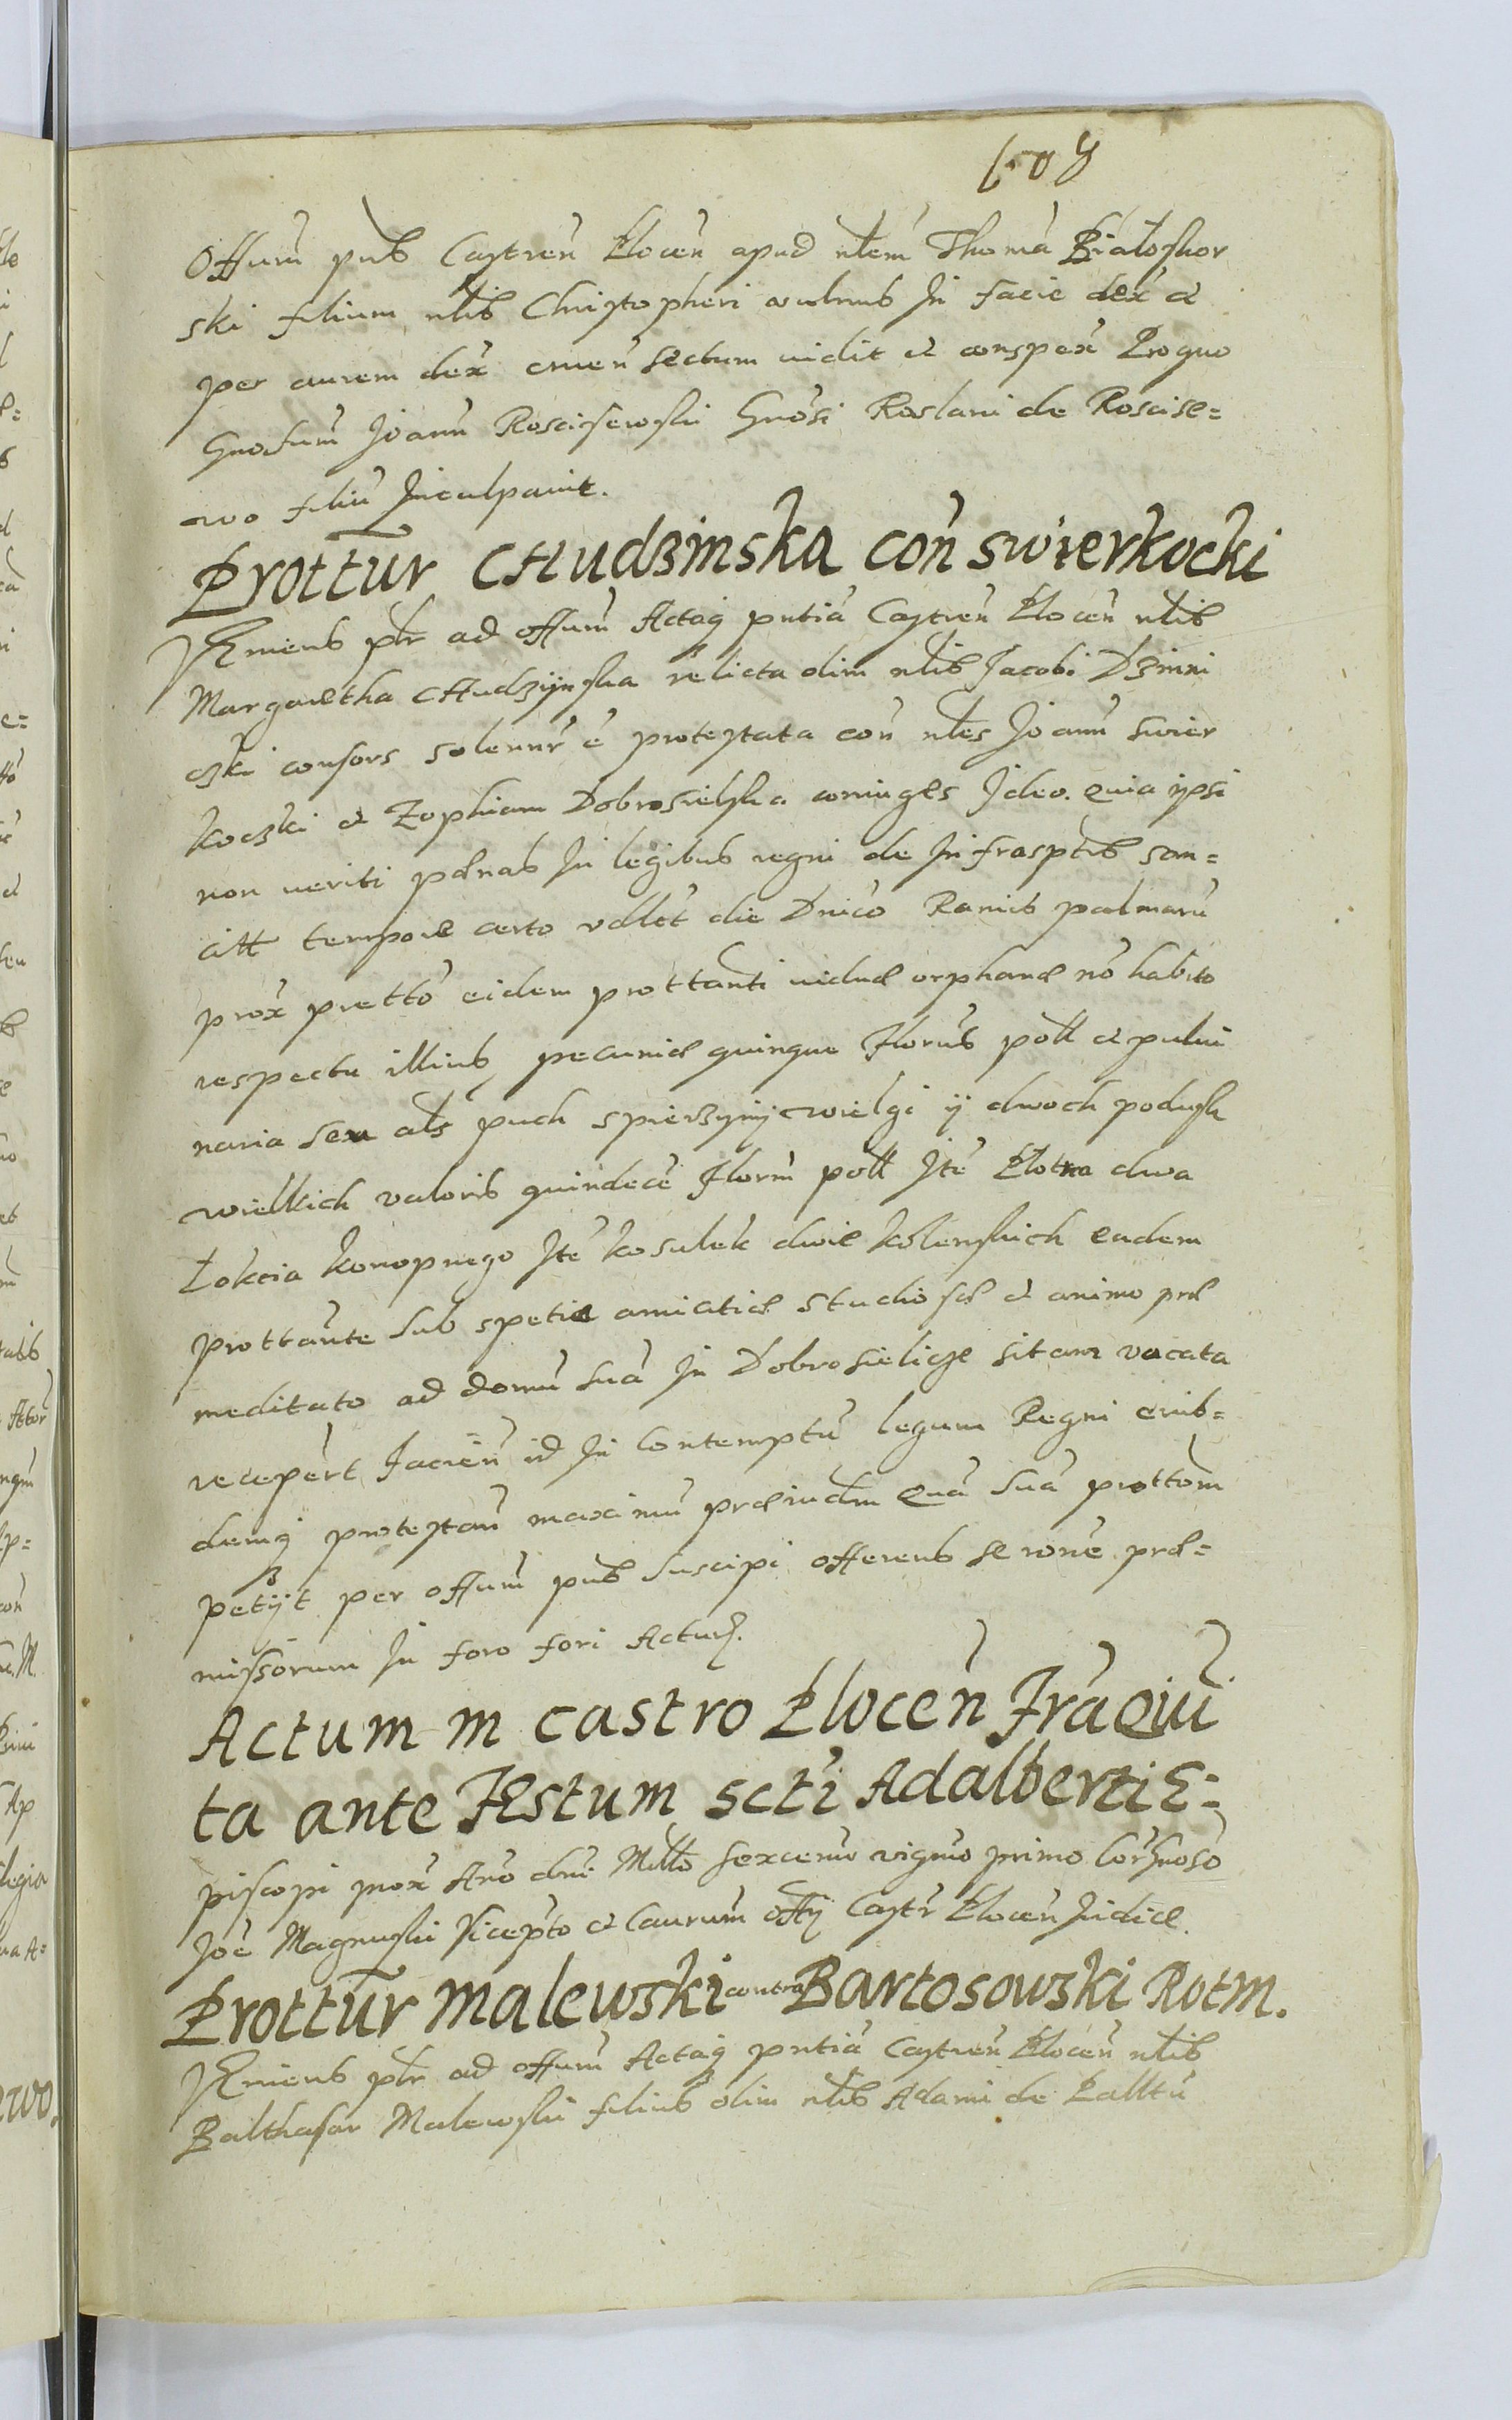 Offum pub Castren Plocen apud nlem Thoma Białoskor
ski filium nlis Christopheri vulnus In facie dex et
per aurem dex cruen sectum vidit et conspex Pro quo
Gnosum Joann Roscisewski Gnosi Roslani de Roscise=
wo filiu Inculpavit.
Prottur CHudzinska con swierkocki
VEniens plr ad offum Actaq pntia Castren Plocen nlis
Margaretha CHudzijnska relicta olim nlis Jacobi Dzinni
czki consors solennr e protestata con nles Joann swier
koczki et Zophiam Dobrosielska coniuges Ideo. Quia ipsi
non veriti pœnas In legibus regni de Infrasptis san=
citt tempore certo vdlet die Dnico Ramis palmaru
prox pretto eidem prottanti viduæ orphanæ no habito
respectu illius pecuniæ quinque Florus poll et pului
naria seu als puch spierzynij wielgi ij dwoch podusk
wielkich valoris quindece Florm poll Ite Płotna dwa
Łokcia konopnego Ite kosulek dwie kolenskich eadem
prottante sub spetie amicitiæ studiose et animo præ
meditato ad domu sua In Dobrosielicze sitam vocata
recepert Facien id In contemptu legum Regni eius=
demq protestan maximu præiudm Qua sua prottom
petijt per offum pub suscipi offerens se rone præ=
missorum In foro fori Actur.
Actum in castro Plocen Fra Qui
ta ante FEstum scti Adalberti E=
piscopi prox Ano dni Millo sexcenmo vigmo primo Cor Gnoso
Joe Magnuski Vicepto et Caurum offij Castr Plocen Iudice
Prottur Malewski contra Bartosowski Rotm.
VEniens plr ad offum Actaq pntia Castren Plocen nlis
Balthasar Malewski filius olim nlis Adami de Palltu